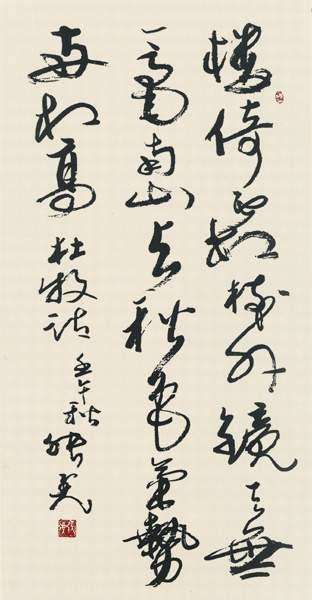 樓倚霜樹外鏡天無
一毫南山与秋色氣勢
兩相高
杜牧诗 壬午秋